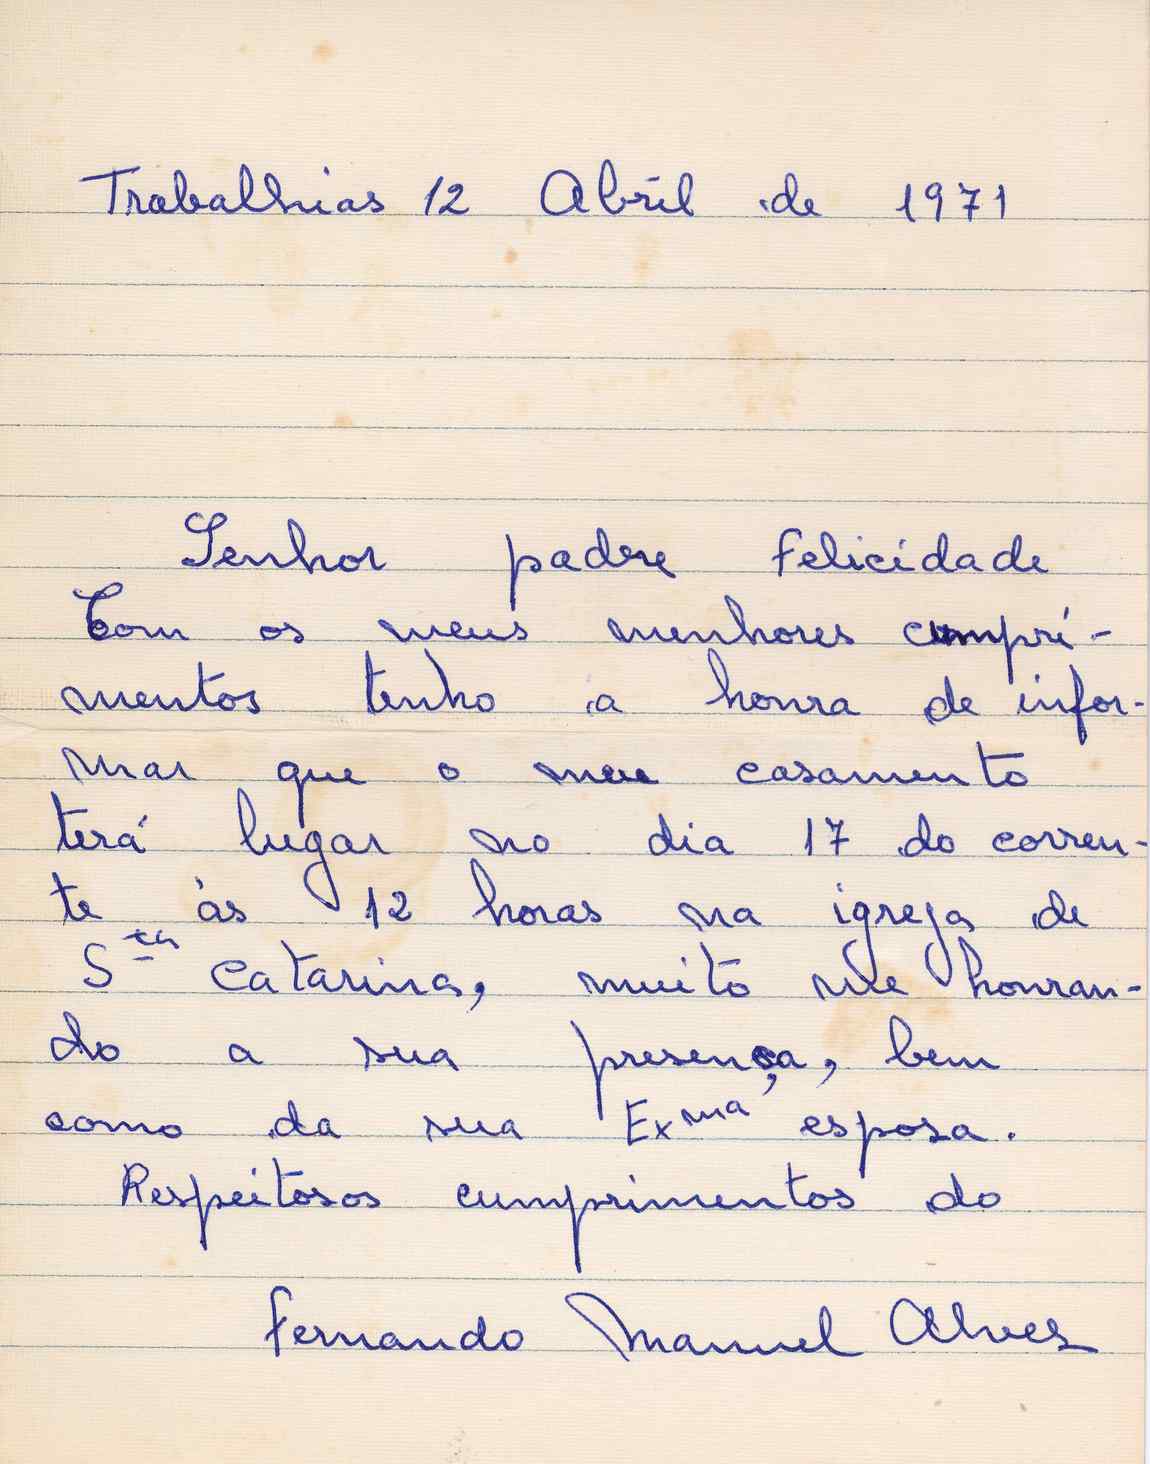 Trabalhias 12 Abril de 1971
Senhor padre Felicidade
Com os meus menhores cumpri-
mentos tenho a honra de infor-
mar que o meu casamento
terá lugar no dia 17 do corren-
te às 12 horas na igreja de
S.ta Catarina, muito me honran-
do a sua presença, bem
como da sua Exma esposa.
Respeitosos cumprimentos do
Fernando Manuel Alves